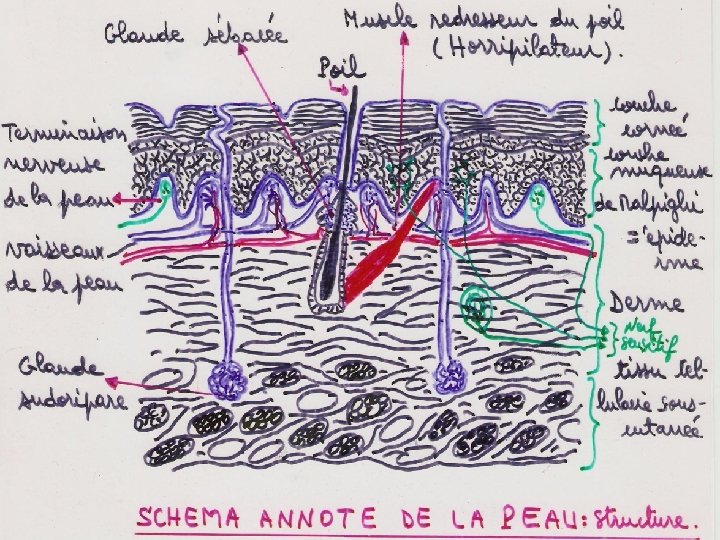 Glande sébacée
Muscle redresseur du poil
(Horripilateur).
Poil
Terminaison
nerveuse
de la peau
vaisseaux
de la peau
Glande
sudoripare
couche
cornée
couche
muqueuse
de Malpighi
= épide-
rme
Derme
Nerf
sensitif
tissu cel-
lulaire sous-
cutanée
SCHEMA ANNOTE DE LA PEAU: structure.